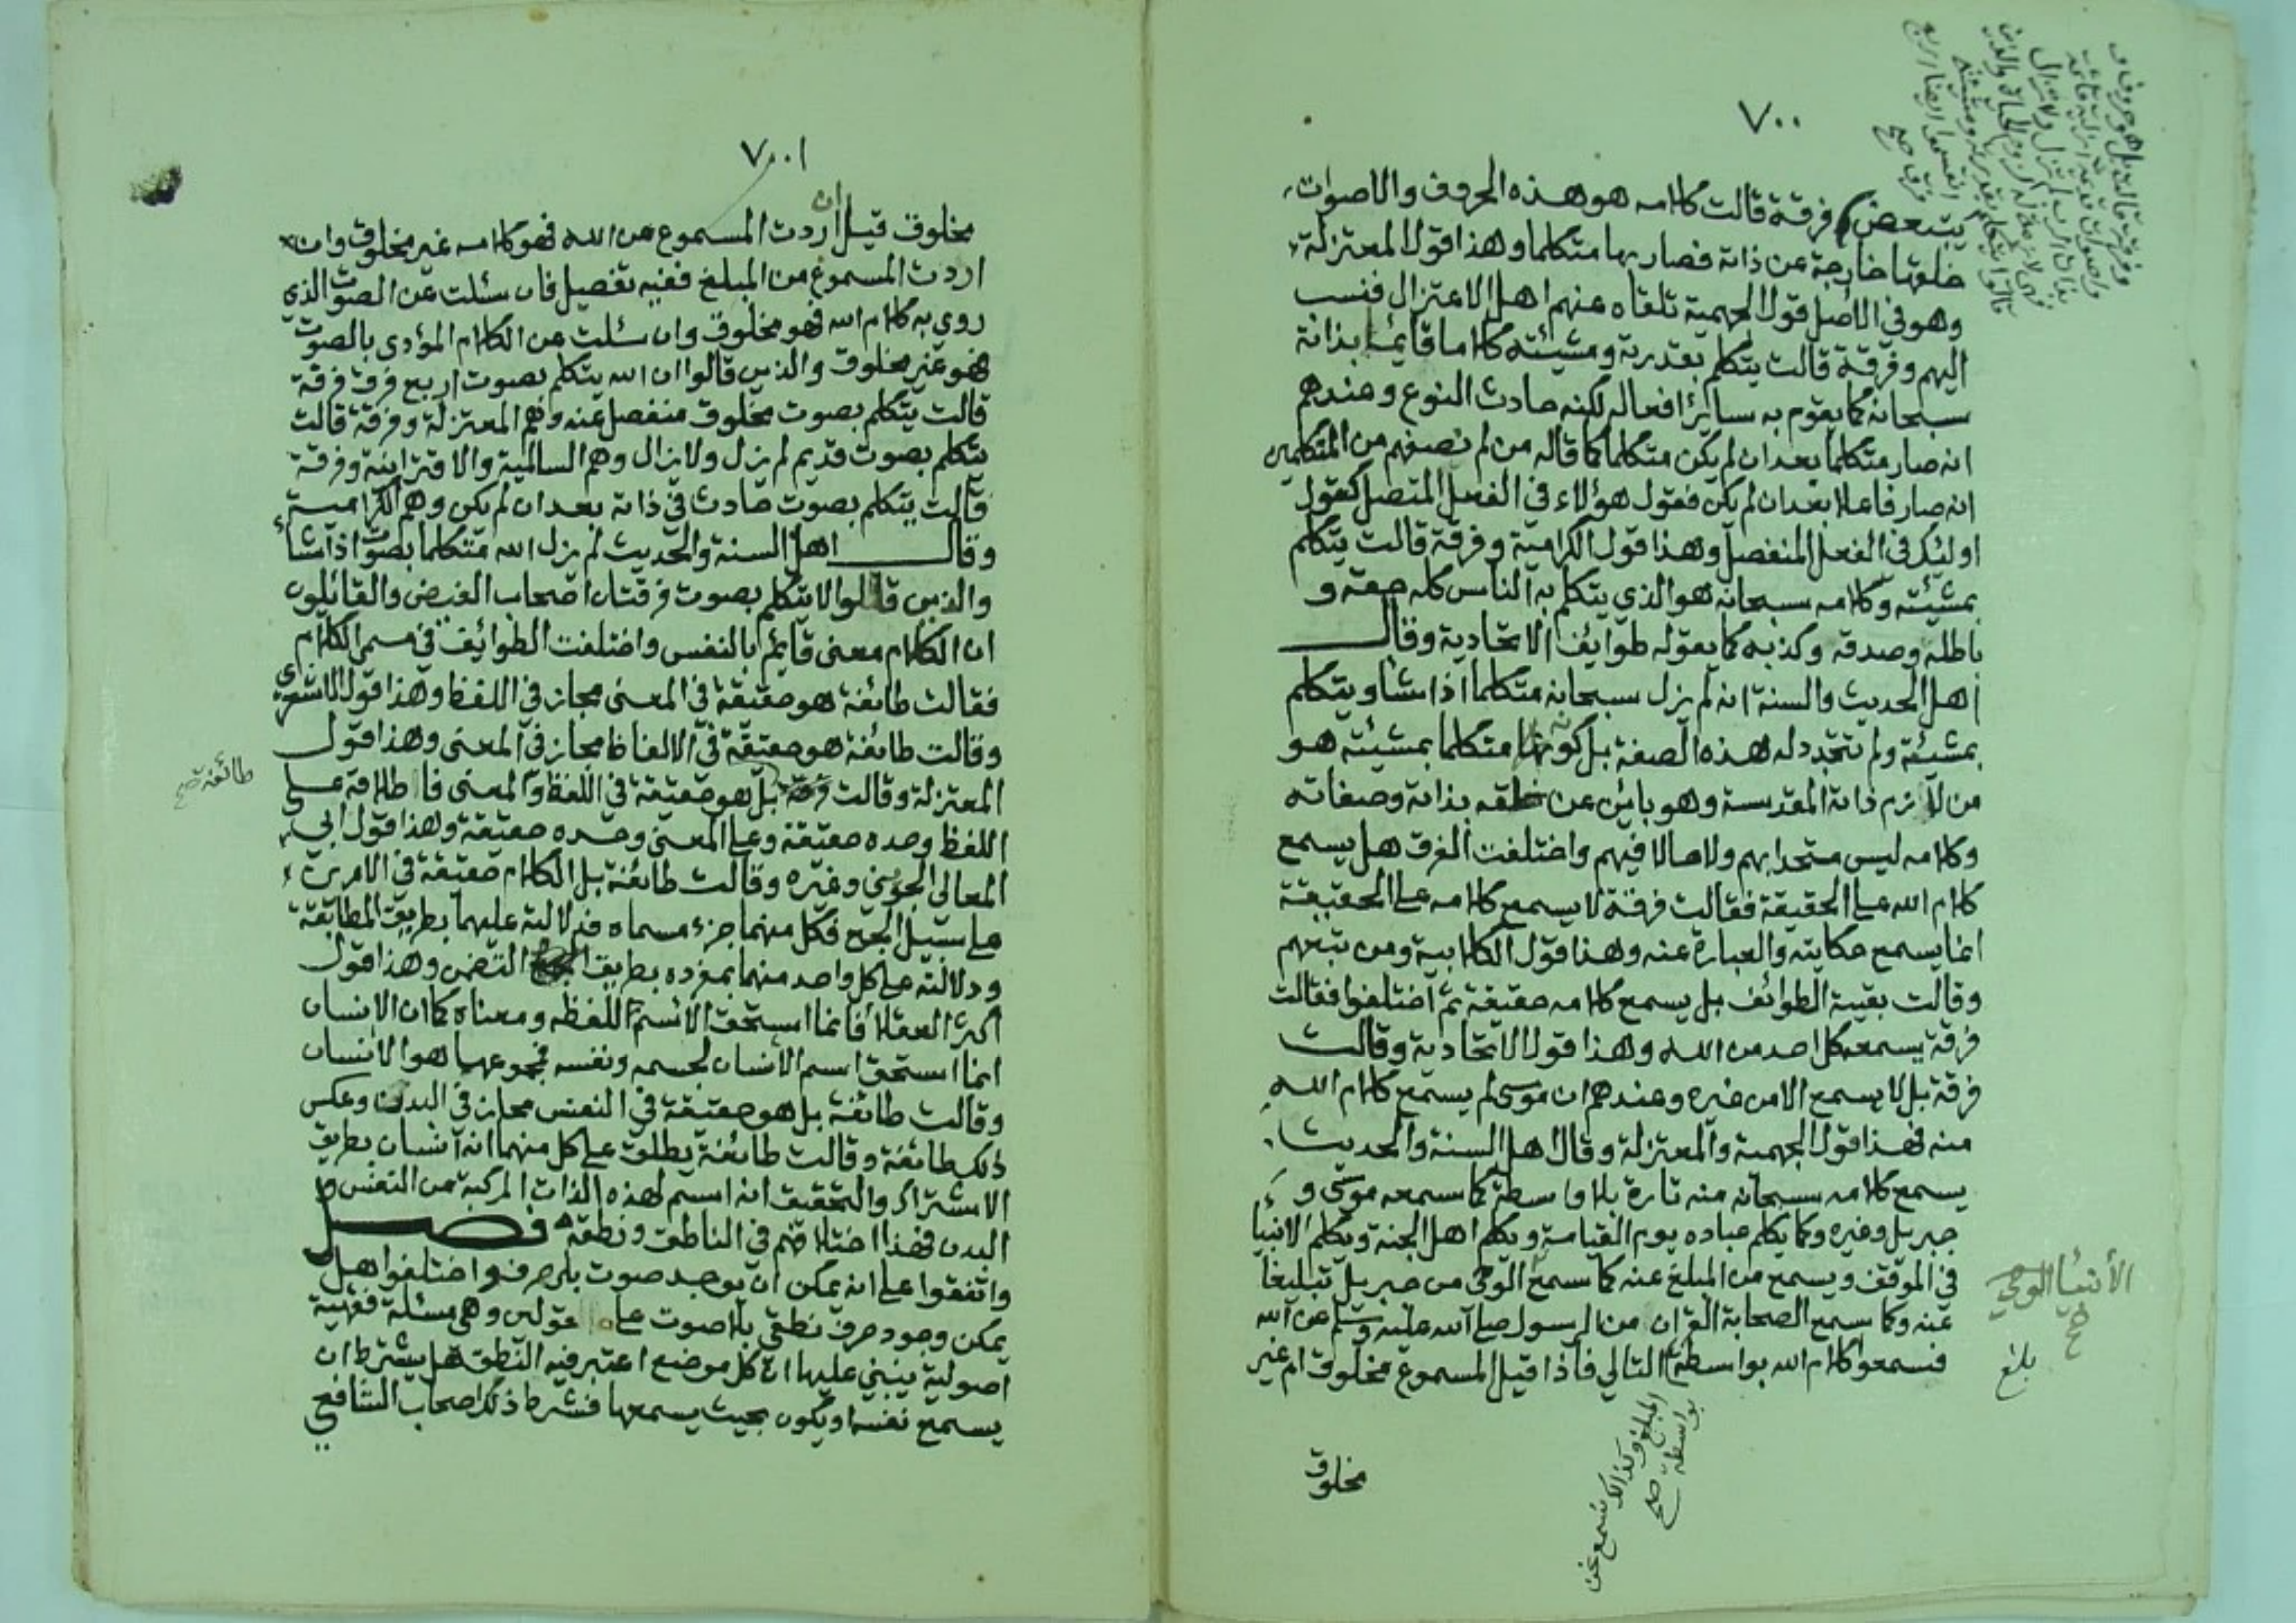 ٧٠٠
يتبعض فرقة قالت كلامه هو هذه الحروف والاصوات
خلقها خارجة عن ذاته فصار بها متكلما وهذا قول المعتزلة
وهو في الاصل قول الجهمية تلقاه عنهم اهل الاعتزال فنسب
اليهم وفرقة قالت يتكلم بقدرته ومشيئته كلاما قائما بذاته
سبحانه كما يقوم به سائر افعاله لكنه حادث النوع وعندهم
انه صار متكلما بعد ان لم يكن متكلما كما قاله من لم نصفهم من المتكلمين
انه صار فاعلا بعد ان لم يكن فقول هؤلاء في الفعل المتصل كقول
اولئك في الفعل المنفصل وهذا قول الكرامية وفرقة قالت يتكلم
بمشيئته وكلامه سبحانه هو الذي يتكلم به الناس كله حقه و
باطله وصدقه وكذبه كما يقوله طوايف الاتحادية وقال
اهل الحديث والسنة انه لم يزل سبحانه متكلما اذا شا ويتكلم
بمشيئة ولم تتجدد له هذه الصفة بل كونه متكلما بمشيئته هو
من لازم ذاته المقدسة وهو بائن عن خلقه بذاته وصفاته
وكلامه ليس متحدا بهم ولا حالا فيهم واختلفت الفرق هل يسمع
كلام الله على الحقيقة فقالت فرقة لا يسمع كلامه على الحقيقة
انما يسمع حكايته والعبارة عنه وهذا قول الكلابية ومن تبعهم
وقالت بقية الطوائف بل يسمع كلامه حقيقة ثم اختلفوا فقالت
فرقة يسمعه كل احد من الله وهذا قول الاتحادية وقالت
فرقة بل لا يسمع الا من غيره وعندهم ان موسى لم يسمع كلام الله
منه فهذا قول الجهمية والمعتزلة وقال اهل السنة والحديث
يسمع كلامه سبحانه منه تارة بلا واسطة كما سمعه موسى و
جبريل وغيره وكما يكلم عباده يوم القيامة ويكلم اهل الجنة ويكلم الانبيا
في الموقف ويسمع من المبلغ عنه كما سمع الوحي من جبريل تبليغا
عنه وكما سمع الصحابة القران من الرسول صلى الله عليه وسلم عن الله
فسمعوا كلام الله بواسطة التالي فاذا قيل المسموع مخلوق ام غير
الأنبيا الوحي
صح
بلغ
المبلغ وكذلك نسمع نحن
بواسطة صح
مخلوق
٧٠١
مخلوق قيل ان اردت المسموع عن الله فهو كلامه غير مخلوق وان
اردت المسموع من المبلغ ففيه تفصيل فان سئلت عن الصوت الذي
روي به كلام الله فهو مخلوق وان سئلت عن الكلام المؤدى بالصوت
فهو غير مخلوق والذين قالوا ان الله يتكلم بصوت اربع فرق فرقة
قالت يتكلم بصوت مخلوق منفصل عنه وهم المعتزلة وفرقة قالت
يتكلم بصوت قديم لم يزل ولا يزال وهم السالمية والاقترانية وفرقة
قالت يتكلم بصوت حادث في ذاته بعد ان لم يكن وهم الكرامية
وقال اهل السنة والحديث لم يزل الله متكلما بصوت اذا شاء
والذين قالوا لا يتكلم بصوت فرقتان اصحاب الفيض والقائلون
ان الكلام معنى قائم بالنفس واختلفت الطوائف في مسمى الكلام
فقالت طائفة هو حقيقة في المعنى مجاز في اللفظ وهذا قول الاشعري
وقالت طائفة هو حقيقة في الالفاظ مجاز في المعنى وهذا قول
المعتزلة وقالت فرقة بل هو حقيقة في اللفظ والمعنى فاطلاقه على
طائفة صح
اللفظ وحده حقيقة وعلى المعنى وحده حقيقة وهذا قول ابي
المعالي الجويني وغيره وقالت طائفة بل الكلام حقيقة في الامرين
على سبيل الجمع فكل منهما جزء مسماه فدلالته عليهما بطريق المطابقة
ودلالته على كل واحد منهما بمفرده بطريق التضمن وهذا قول
اكثر العقلا فانما استحق الاسم اللفظه ومعناه كما ان الانسان
انما استحق اسم الانسان لجسمه ونفسه فمجموعهما هو الانسان
وقالت طائفة بل هو حقيقة في النفس مجاز في البدن وعكس
ذلك طائفة وقالت طائفة يطلق على كل منهما انه انسان بطريق
الاشتراك والتحقيق انه اسم لهذه الذات المركبة من النفس و
البدن فهذا اختلافهم في الناطق ونطقه فصل
واتفقوا على انه يمكن ان يوجد صوت بلا حرف واختلفوا هل
يمكن وجود حرف نطقي بلا صوت على قولين وهي مسئلة فقهية
اصولية ينبني عليها ان كل موضع اعتبر فيه النطق هل يشترط ان
يسمع نفسه او يكون بحيث يسمعها فشرط ذلك اصحاب الشافعي